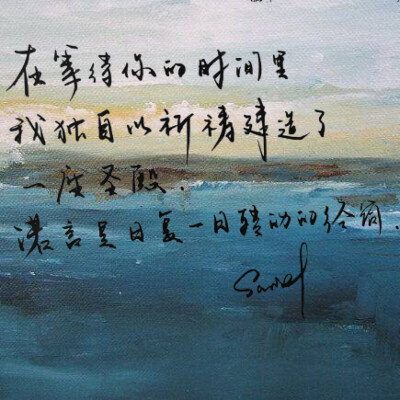 在等待你的时间里
我独自以祈祷建造了
一座圣殿.
诺言是日复一日转动的经筒.